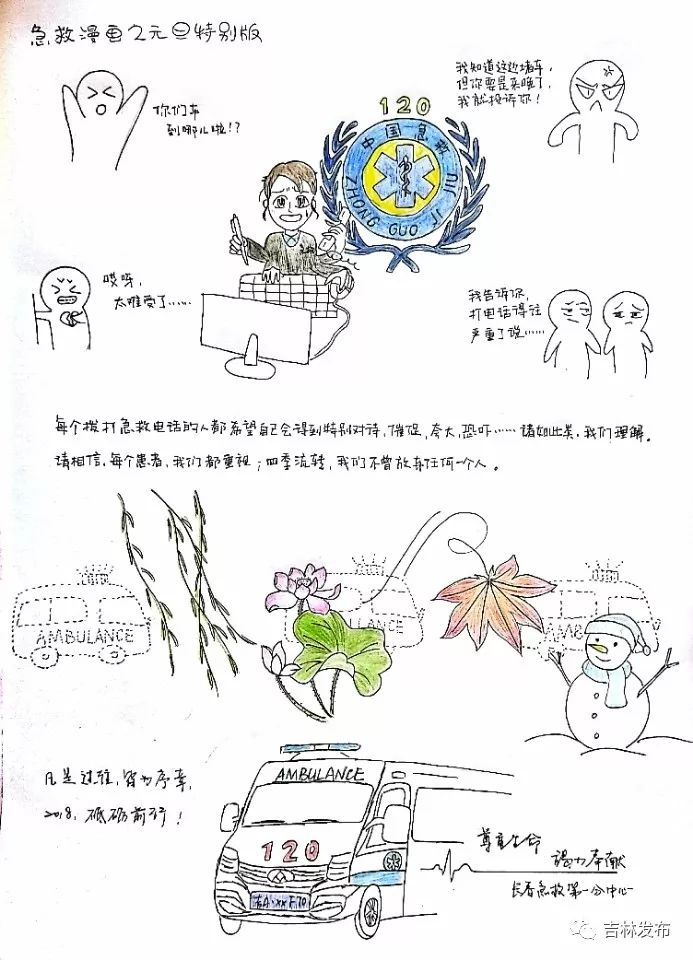 急救漫画之元旦特别版
你们车
到哪儿啦!?
我知道这边堵车,
但你要是来晚了,
我就投诉你!
120
中国急救
ZHONG GUO JI JIU
哎呀,
太难受了……
我告诉你,
打电话得往
严重了说……
每个拨打急救电话的人都希望自己会得到特别对待,催促,夸大,恐吓……诸如此类,我们理解。
请相信,每个患者,我们都重视;四季流转,我们不曾放弃任何一个人。
AMBULANCE
AMBULANCE
AMB
凡是过往,皆为序章,
2018,砥砺前行!
AMBULANCE
120
吉A·XX120
尊重生命
竭力奉献
长春急救第一分中心
吉林发布